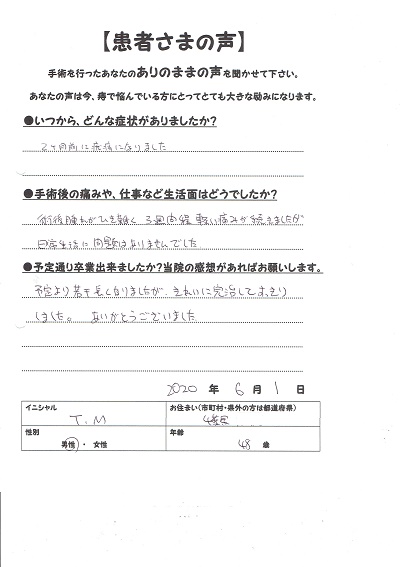 【患者さまの声】
手術を行ったあなたのありのままの声を聞かせて下さい。
あなたの声は今、痔で悩んでいる方にとってとても大きな励みになります。
●いつから、どんな症状がありましたか?
2ヶ月前に痔瘻になりました
●手術後の痛みや、仕事など生活面はどうでしたか?
術後腫れがひき難く 3週間程 軽い痛みが続きましたが
日常生活に問題はありませんでした
●予定通り卒業出来ましたか?当院の感想があればお願いします。
予定より若干長くなりましたが、きれいに完治してすっきり
しました。 ありがとうございました
2020 年 6 月 1 日
イニシャル
お住まい(市町村・県外の方は都道府県)
T.M
性別
年齢
男性 ・ 女性
48 歳